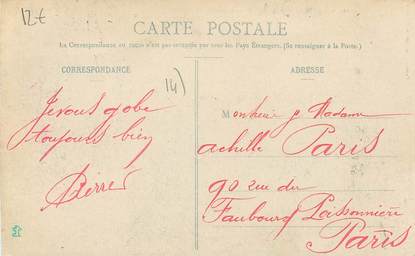 12€
CARTE POSTALE
La Correspondance au recto n'est pas acceptée par tous les Pays Étrangers. (Se renseigner à la Poste.)
CORRESPONDANCE
ADRESSE
14)
Je vous gobe
toujours bien
Pierre
Monsieur & Madame
achille Paris
90 rue du
Faubourg Poissonnière
Paris